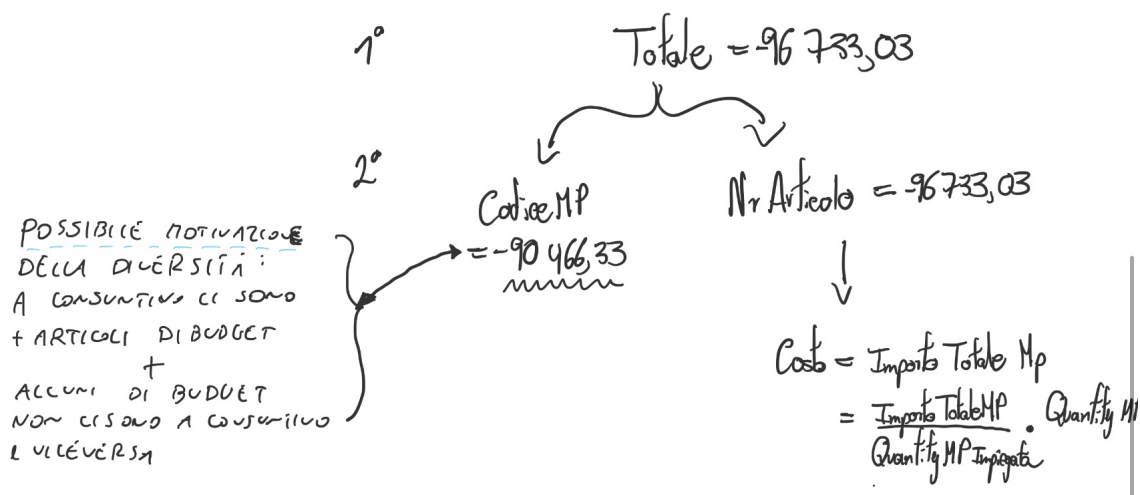 1° Totale = -96 733,03
2°
CodiceMP
= -90 466,33
Nr Articolo = -96733,03
POSSIBILE MOTIVAZIONE
DELLA DIVERSITÀ :
A CONSUNTIVO CI SONO
+ ARTICOLI DI BUDGET
+
ALCUNI DI BUDGET
NON CI SONO A CONSUNTIVO
E VICEVERSA
Costo = Importo Totale Mp
= Importo Totale MP / Quantity MP Impiegata . Quantity MP